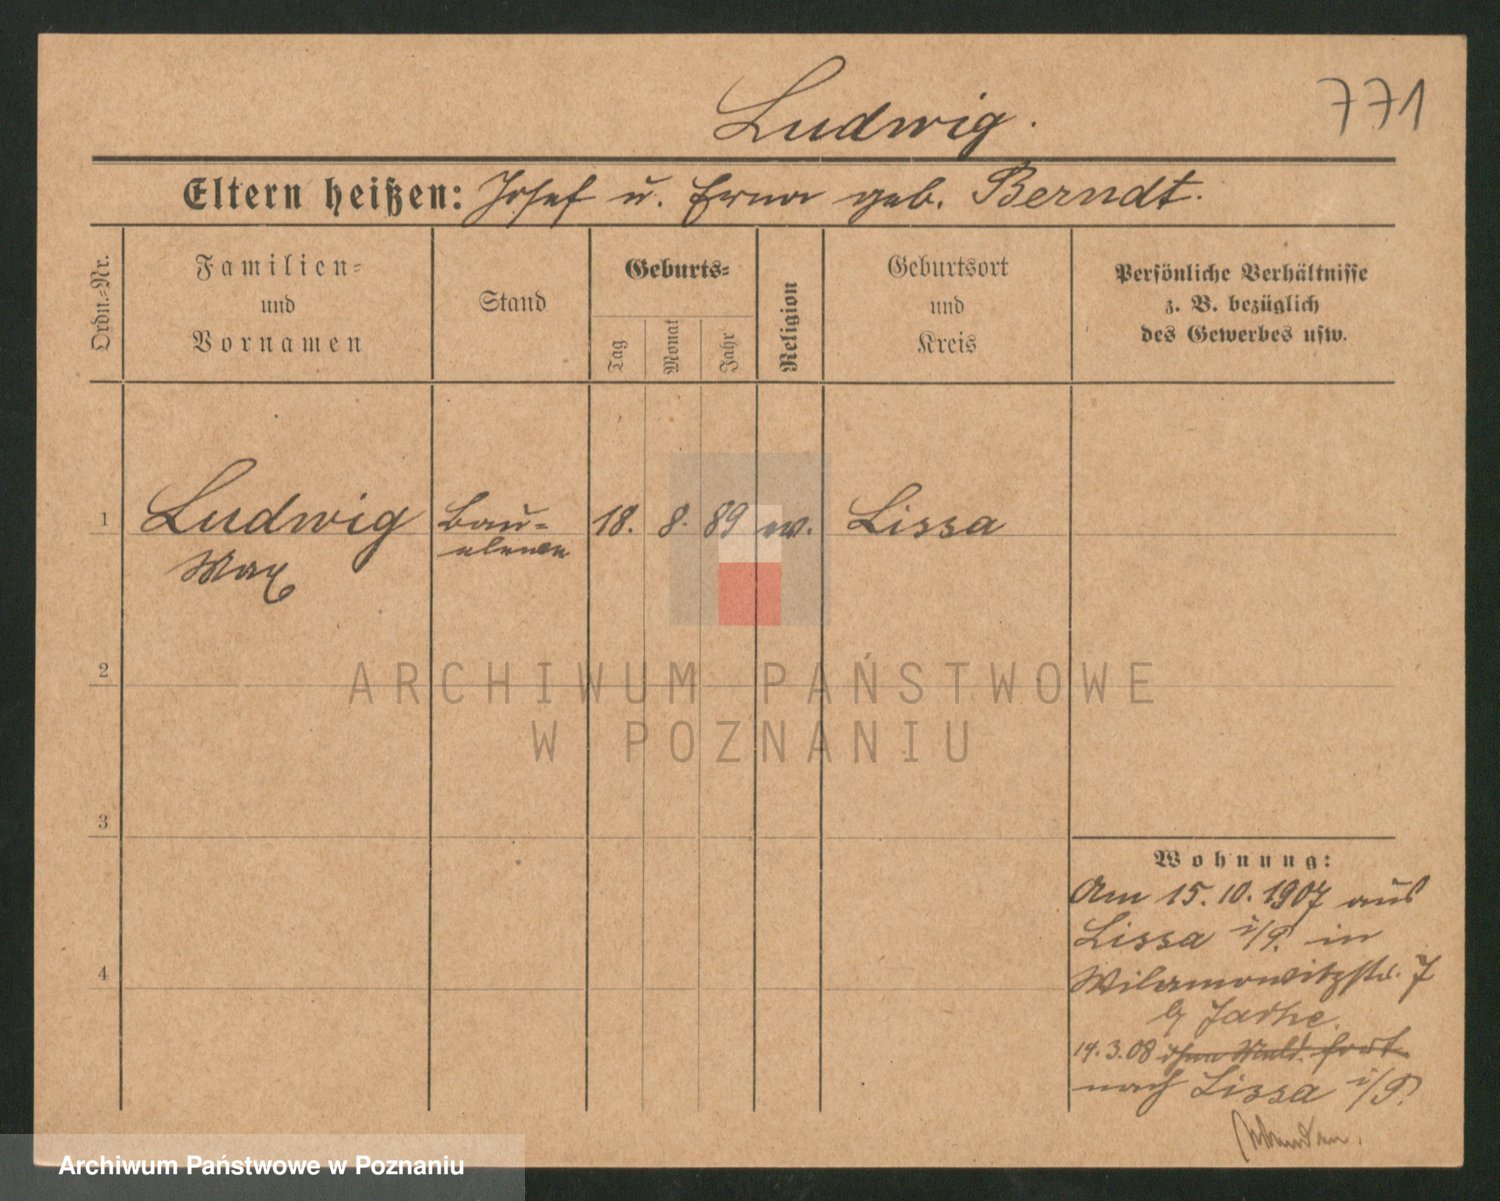 Ludwig.
771
Eltern heißen: Josef u. Erna geb. Berndt.
Ordn.-Nr.
Familien-
und
Vornamen
Stand
Geburts-
Tag
Monat
Jahr
Religion
Geburtsort
und
Kreis
Persönliche Verhältnisse
z. B. bezüglich
des Gewerbes usw.
1 Ludwig Bau- 18. 8. 89 ev. Lissa
Max eleve
2
ARCHIWUM PAŃSTWOWE
W POZNANIU
3
Wohnung:
Am 15.10.1907 aus
Lissa i/P. in
4
Wilamowitzstr. 7
b/
14.3.08 fort
nach Lissa i/P.
Archiwum Państwowe w Poznaniu